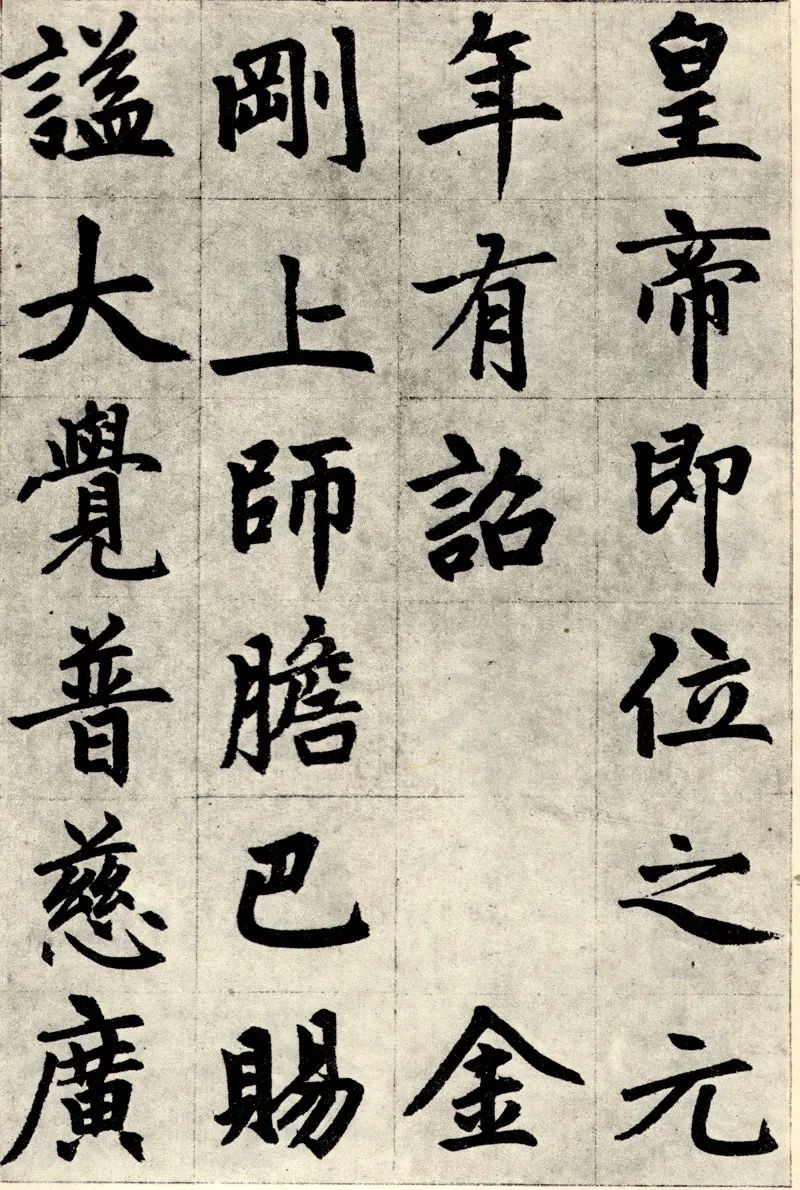 皇帝即位之元
年有詔金
剛上師膽巴賜
謚大覺普慈廣